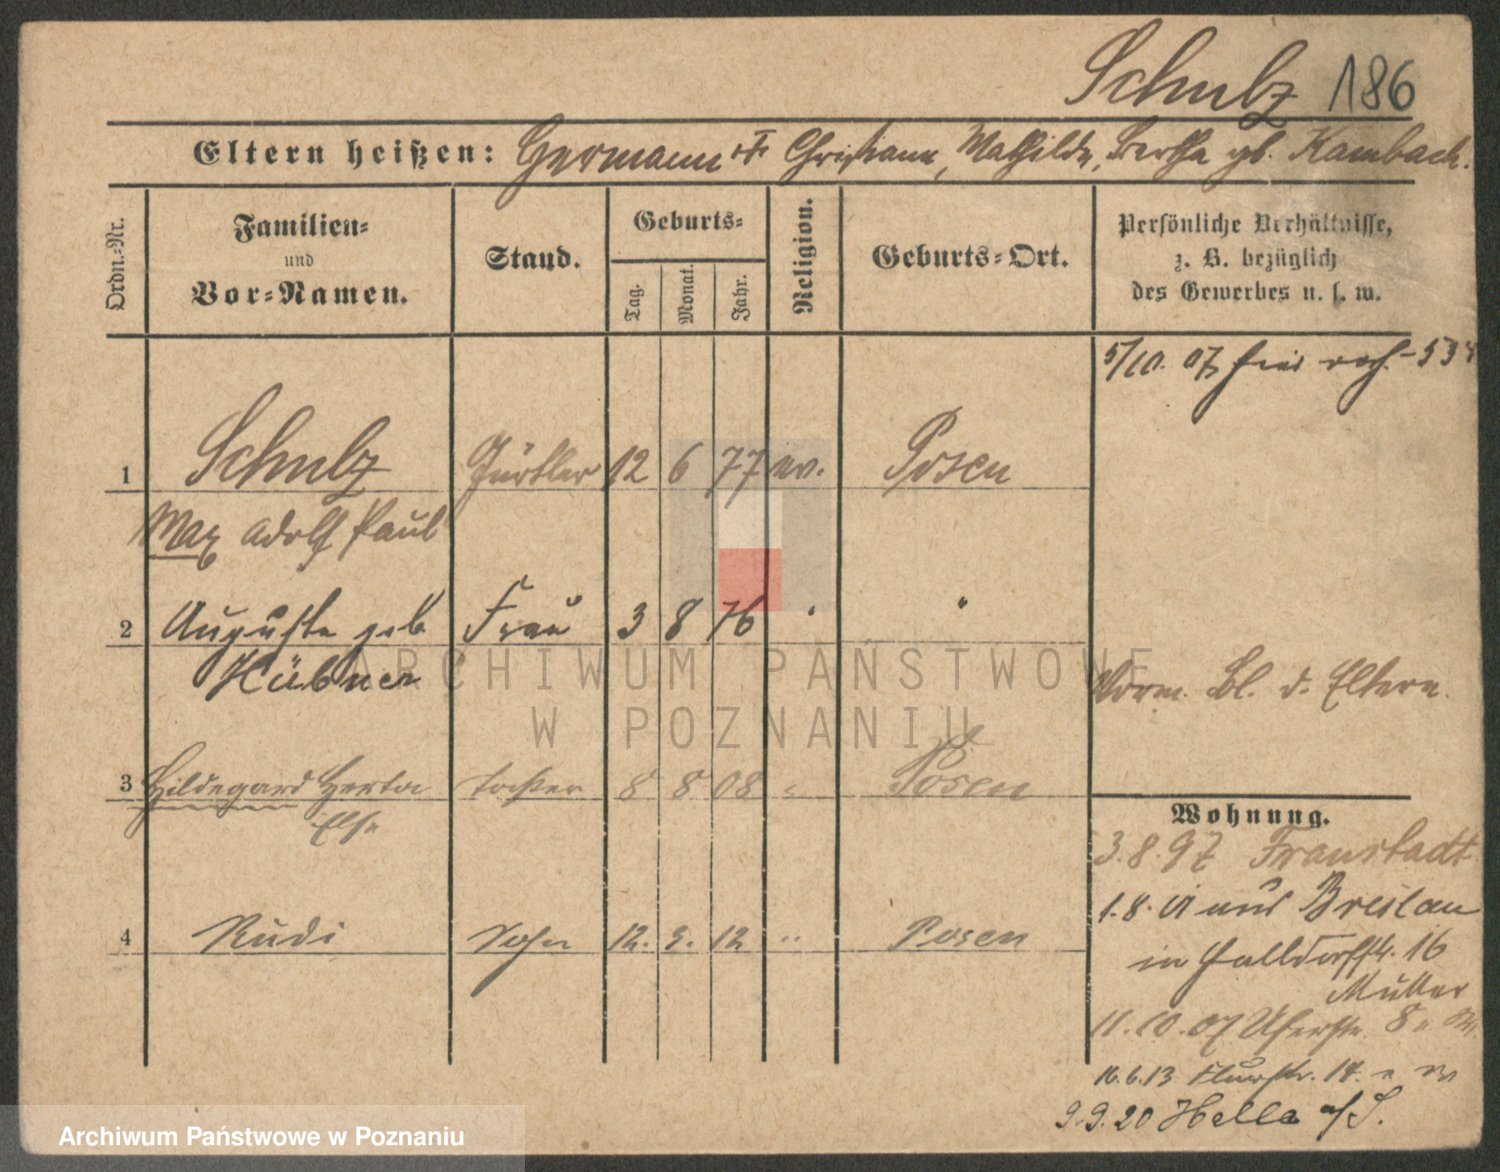 Schulz 186
Eltern heißen: Hermann u. Christiane, Mathilde, Bertha gb. Kambach.
Ordn.-Nr.
Familien-
und
Vor-Namen.
Stand.
Geburts-
Tag.
Monat.
Jahr.
Religion.
Geburts-Ort.
Persönliche Verhältnisse,
z. B. bezüglich
des Gewerbes u. s. w.
5/10. 07
1 Schulz Gürtler 12 6 77 ev. Posen
Max Adolf Paul
2 Auguste geb Frau 3 8 76 " "
Hübner
Vorm. Bl. d. Eltern.
3 Hildegard Herta Tochter 8 8 08 " Posen
Else
4 Rudi Sohn 12. 9. 12 " Posen
Wohnung.
3.8.97 Fraustadt
1.8. 01 aus Breslau
in Halldorfstr. 16
Mutter
11.10.07 Uferstr. 8
16.6.13 Flurstr. 14.
9.9.20 Halle a/S.
ARCHIWUM PAŃSTWOWE
W POZNANIU
Archiwum Państwowe w Poznaniu